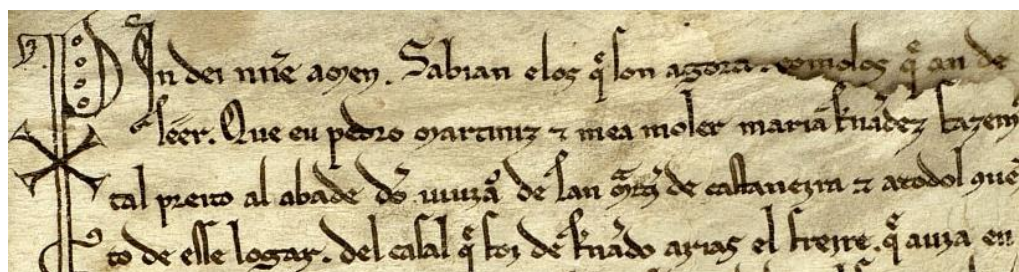 In dei nn̄e amen. Sabian elos q̄ son agora. comolos q̄ an de
seer. Que eu pedro martiniz ⁊ mea moler maria fn̄adez fazem
tal preito al abade dō de san de castaneyra ⁊ atodol 9uē
to de esse logar. del casal q̄ foy de fn̄ado arias el freyre. q̄ auya en